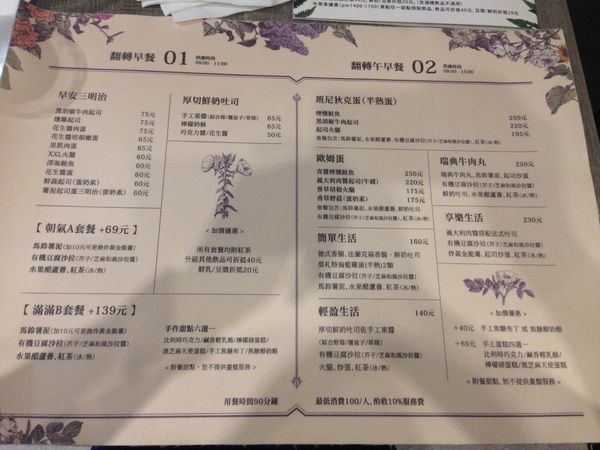 午茶享優惠(pm1400-1700)
翻轉早餐 01 供應時段 09:00 - 11:00
早安三明治
黑胡椒牛肉起司 75元
燻雞起司 75元
花生醬肉蛋 75元
花生醬培根嫩蛋 65元
里肌肉蛋 65元
XXL火腿 60元
深海鮪魚 60元
花生醬蛋 60元
鮮蔬起司(蛋奶素) 60元
薯泥起司蛋三明治(蛋奶素) 60元
厚切鮮奶吐司
手工果醬(綜合莓/覆盆子/草莓) 65元
檸檬奶酥 65元
巧克力醬/花生醬 50元
【 朝氣A套餐 +69元 】
馬鈴薯泥(加10元可更換炸黃金脆薯)
有機豆腐沙拉(芥子/芝麻和風沙拉醬)
水果醋蘆薈、紅茶(冰/熱)
< 加價優惠 >
所有套餐均附紅茶
升級其他飲品可折抵40元
鮮乳/豆漿折抵20元
【 滿滿B套餐 +139元 】
馬鈴薯泥(加10元可更換炸黃金脆薯)
有機豆腐沙拉(芥子/芝麻和風沙拉醬)
水果醋蘆薈、紅茶(冰/熱)
手作甜點六選一
比利時巧克力/鹹香輕乳酪/檸檬磅蛋糕/
黑芝麻天使蛋糕/手工焦糖布丁/焦糖醇奶酪
< 附餐甜點，恕不提供盤盤服務 >
用餐時間90分鐘
翻轉午早餐 02 供應時段 09:00 - 15:00
班尼狄克蛋(半熟蛋)
煙燻鮭魚 250元
黑胡椒牛肉起司 220元
起司火腿 195元
套餐包含:馬鈴薯泥,水果醋蘆薈,有機豆腐沙拉(芥子/芝麻和風沙拉醬),紅茶(冰/熱)
歐姆蛋
青醬煙燻鮭魚 250元
義大利肉醬起司(牛豬) 220元
香草培根火腿 175元
香草野菇(蛋奶素) 175元
套餐包含:馬鈴薯泥、水果醋蘆薈、鮮奶吐司
有機豆腐沙拉(芥子/芝麻和風沙拉醬),紅茶(冰/熱)
簡單生活 160元
德式香腸、法蘭克福香腸、鮮奶吐司
莫札特海藍蘿蛋(半熟)2顆
有機豆腐沙拉(芥子/芝麻和風沙拉醬)
馬鈴薯泥,水果醋蘆薈,紅茶(冰/熱)
輕盈生活 140元
厚切鮮奶吐司佐手工果醬
(綜合野莓/覆盆子/草莓)
有機豆腐沙拉(芥子/芝麻和風沙拉醬)
火腿、炒蛋、紅茶(冰/熱)
瑞典牛肉丸 250元
瑞典牛肉丸,馬鈴薯泥,起司炒蛋
有機豆腐沙拉(芥子/芝麻和風沙拉醬)
鮮奶吐司,水果醋蘆薈,紅茶(冰/熱)
享樂生活 230元
義大利肉醬搭配法式吐司
炸黃金脆薯,起司炒蛋,紅茶(冰/熱)
< 加價優惠 >
+40元 手工焦糖布丁 或 焦糖醇奶酪
+69元 手工蛋糕四選一
比利時巧克力/鹹香輕乳酪/
檸檬磅蛋糕/黑芝麻天使蛋糕
< 附餐甜點，恕不提供盤盤服務 >
最低消費100/人，酌收10%服務費